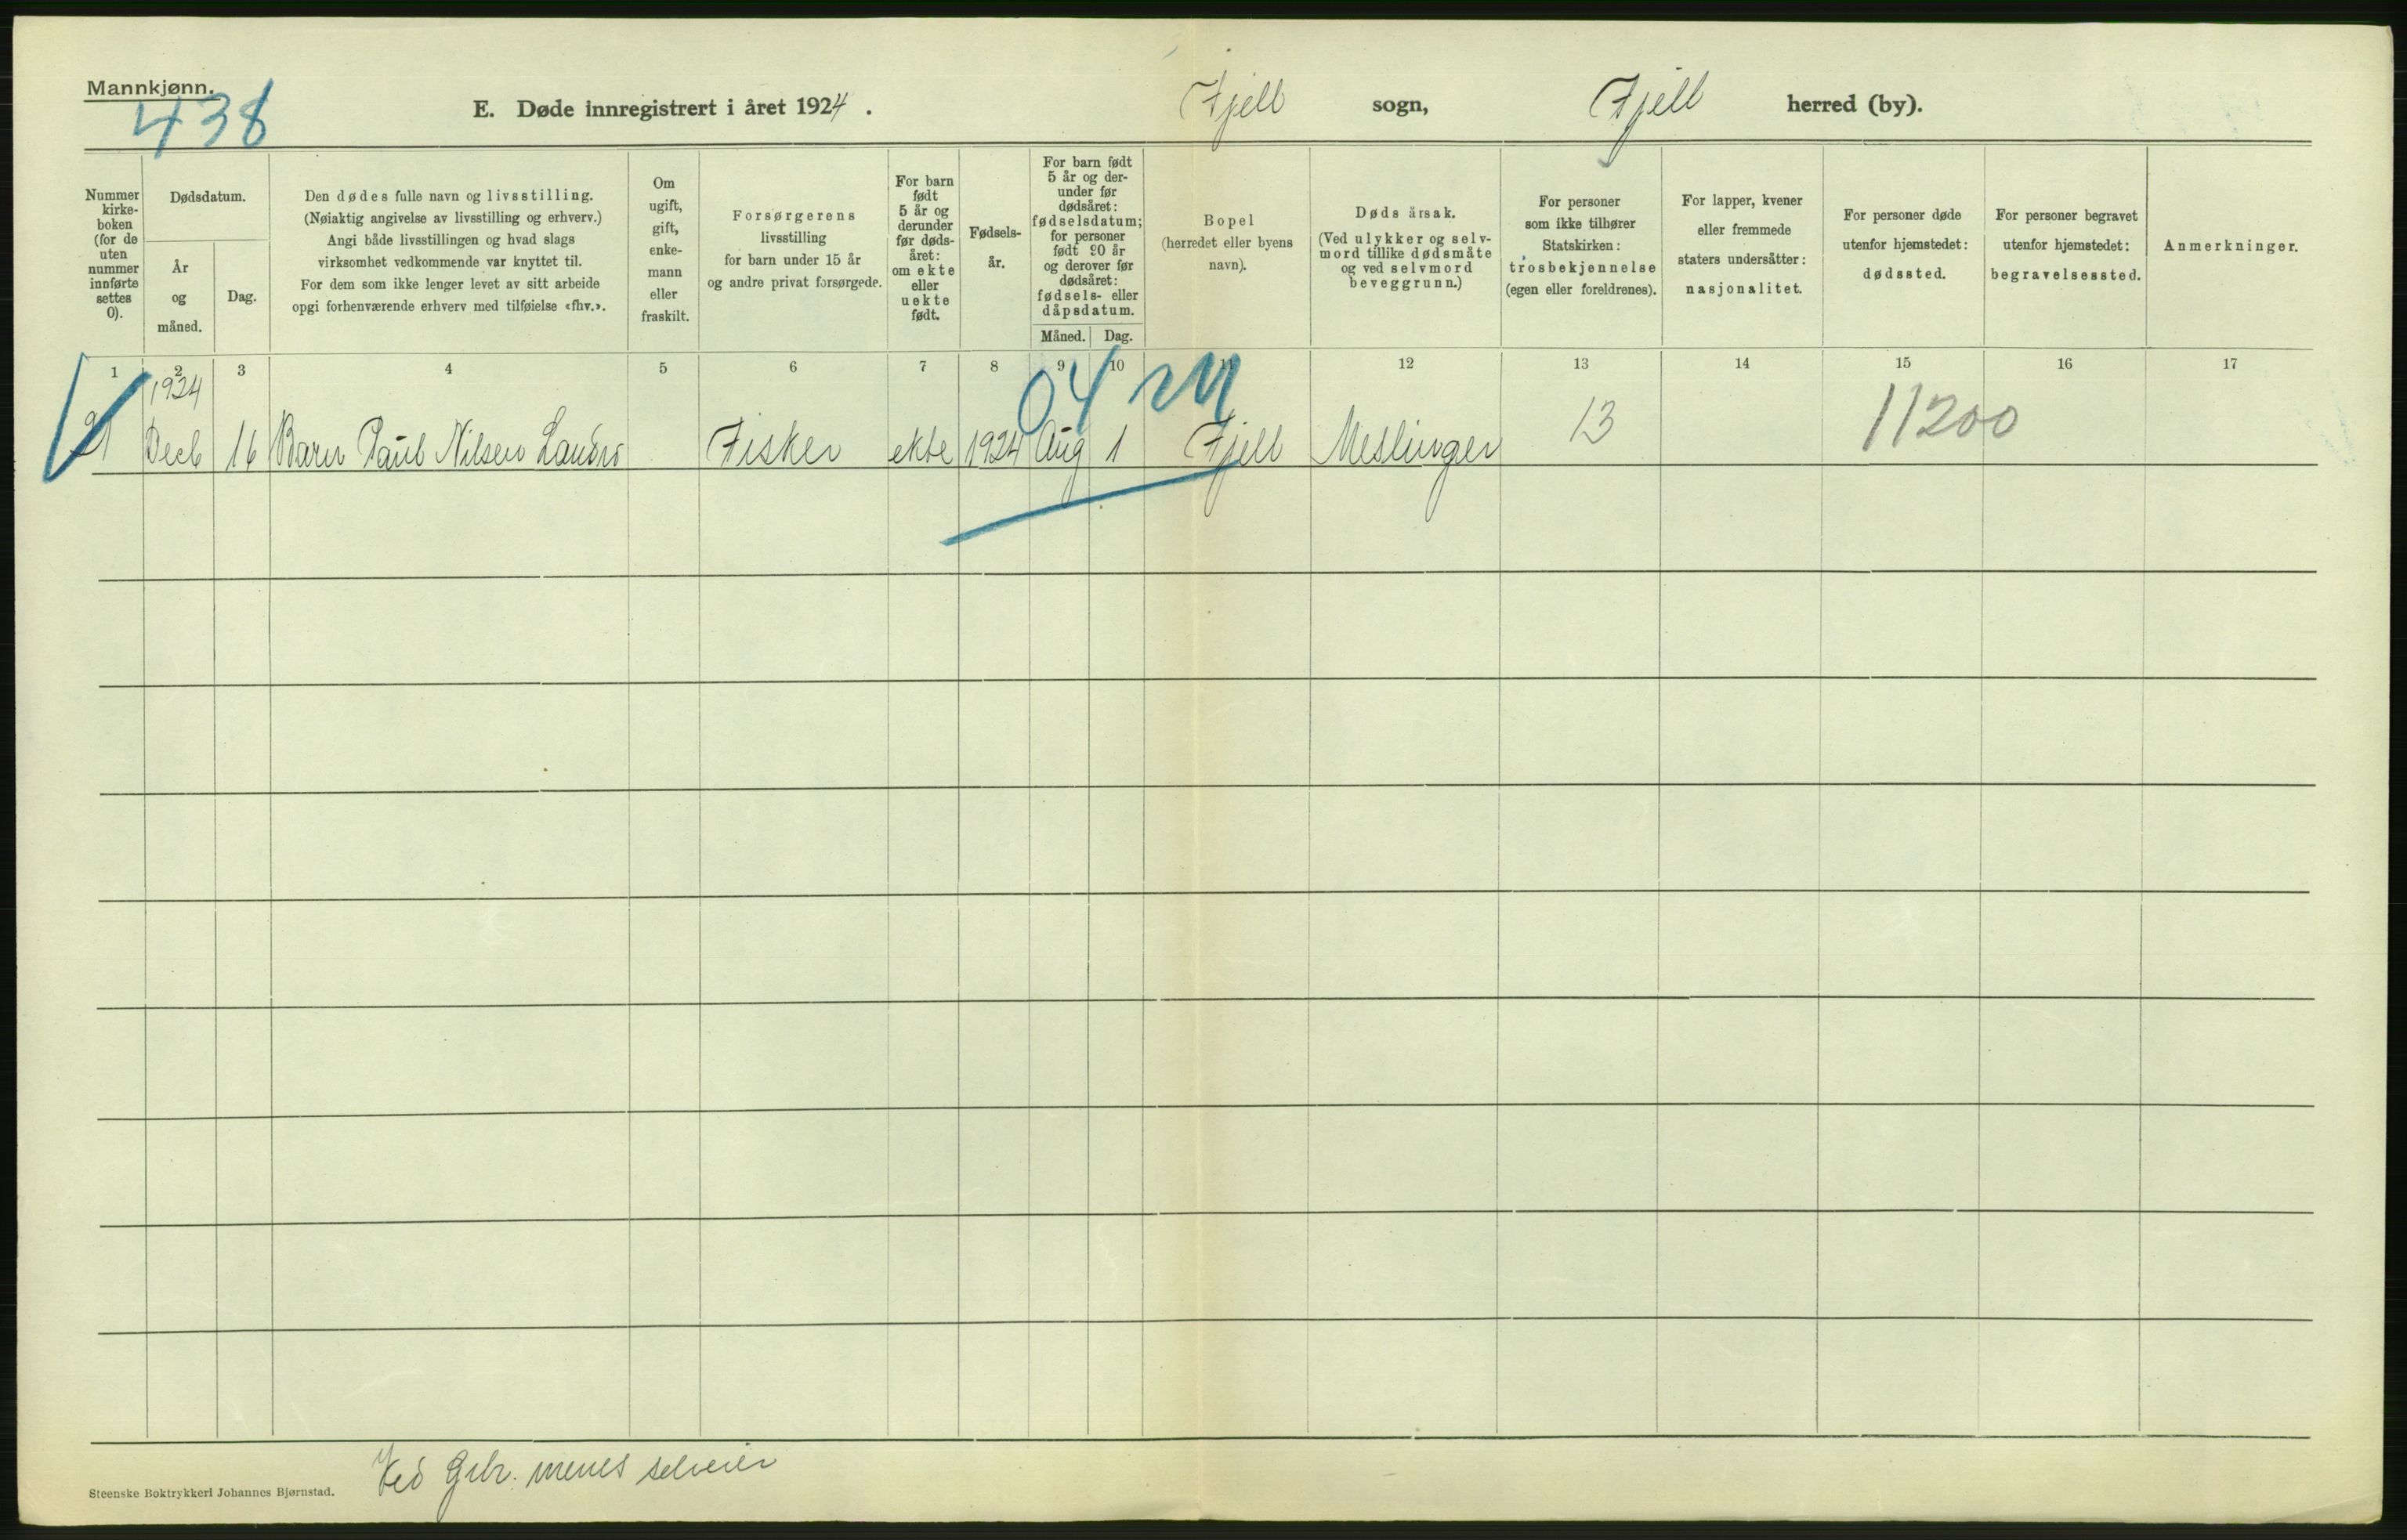 Mannkjønn.
438
E. Døde innregistrert i året 1924. Fjell sogn, Fjell herred (by).
Nummer
kirke-
boken
(for de
uten
nummer
innførte
settes
0).
Dødsdatum.
År
og
måned.
Dag.
Den dødes fulle navn og livsstilling.
(Nøiaktig angivelse av livsstilling og erhverv.)
Angi både livsstillingen og hvad slags
virksomhet vedkommende var knyttet til.
For dem som ikke lenger levet av sitt arbeide
opgi forhenværende erhverv med tilføielse «fhv.».
Om
ugift,
gift,
enke-
mann
eller
fraskilt.
Forsørgerens
livsstilling
for barn under 15 år
og andre privat forsørgede.
For barn
født
5 år og
derunder
før døds-
året:
om ekte
eller
uekte
født.
Fødsels-
år.
For barn født
5 år og der-
under før
dødsåret:
fødselsdatum;
for personer
født 90 år
og derover før
dødsåret:
fødsels- eller
dåpsdatum.
Måned. Dag.
Bopel
(herredet eller byens
navn).
Dødsårsak.
(Ved ulykker og selv-
mord tillike dødsmåte
og ved selvmord
beveggrunn.)
For personer
som ikke tilhører
Statskirken:
trosbekjennelse
(egen eller foreldrenes).
For lapper, kvener
eller fremmede
staters undersåtter:
nasjonalitet.
For personer døde
utenfor hjemstedet:
dødssted.
For personer begravet
utenfor hjemstedet:
begravelsessted.
Anmerkninger.
1 2 3 4 5 6 7 8 9 10 11 12 13 14 15 16 17
1924
04 m
21 Decb 16 Barn Paul Nilsen Landro Fisker ekte 1924 Aug 1 Fjell Meslinger 13 11200
Ved Gbr. menes selveier
Steenske Boktrykkeri Johannes Bjørnstad.